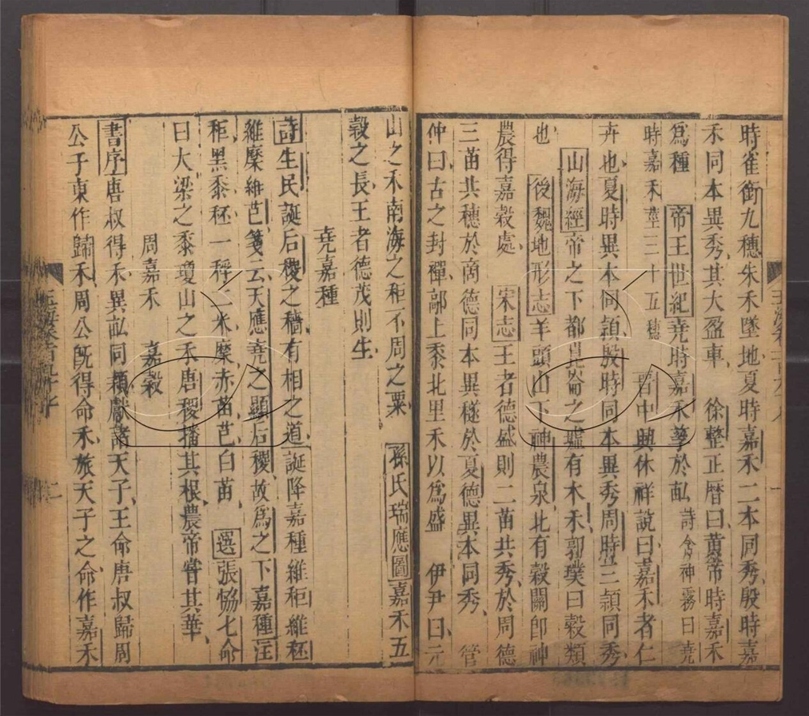 時雀銜九穗朱禾墜地夏時嘉禾二本同秀殷時嘉
禾同本異秀其大盈車 徐整正曆曰黃帝時嘉禾
爲種 帝王世紀堯時嘉禾孳於畝 詩含神霧曰堯
時嘉禾莖三十五穗 晉中興休祥說曰嘉禾者仁
卉也夏時異本同穎殷時同本異秀周時三穎同秀
山海經帝之下都崑崙之墟有木禾郭璞曰穀類
也 後魏地形志羊頭山下神農泉北有穀關卽神
農得嘉穀處 宋志王者德盛則二苗共秀於周德
三苗共穗於商德同本異穟於夏德異本同秀 管
仲曰古之封禪鄗上黍北里禾以爲盛 伊尹曰元
山之禾南海之秬不周之粟 孫氏瑞應圖嘉禾五
穀之長王者德茂則生
堯嘉種
詩生民誕后稷之穡有相之道誕降嘉種維秬維秠
維穈維芑箋云天應堯之顯后稷故爲之下嘉種注
秬黑黍秠一稃二米穈赤苗芑白苗 選張協七命
曰大梁之黍瓊山之禾唐稷播其根農帝嘗其華
周嘉禾 嘉穀
書序唐叔得禾異畝同穎獻諸天子王命唐叔歸周
公于東作歸禾周公旣得命禾旅天子之命作嘉禾